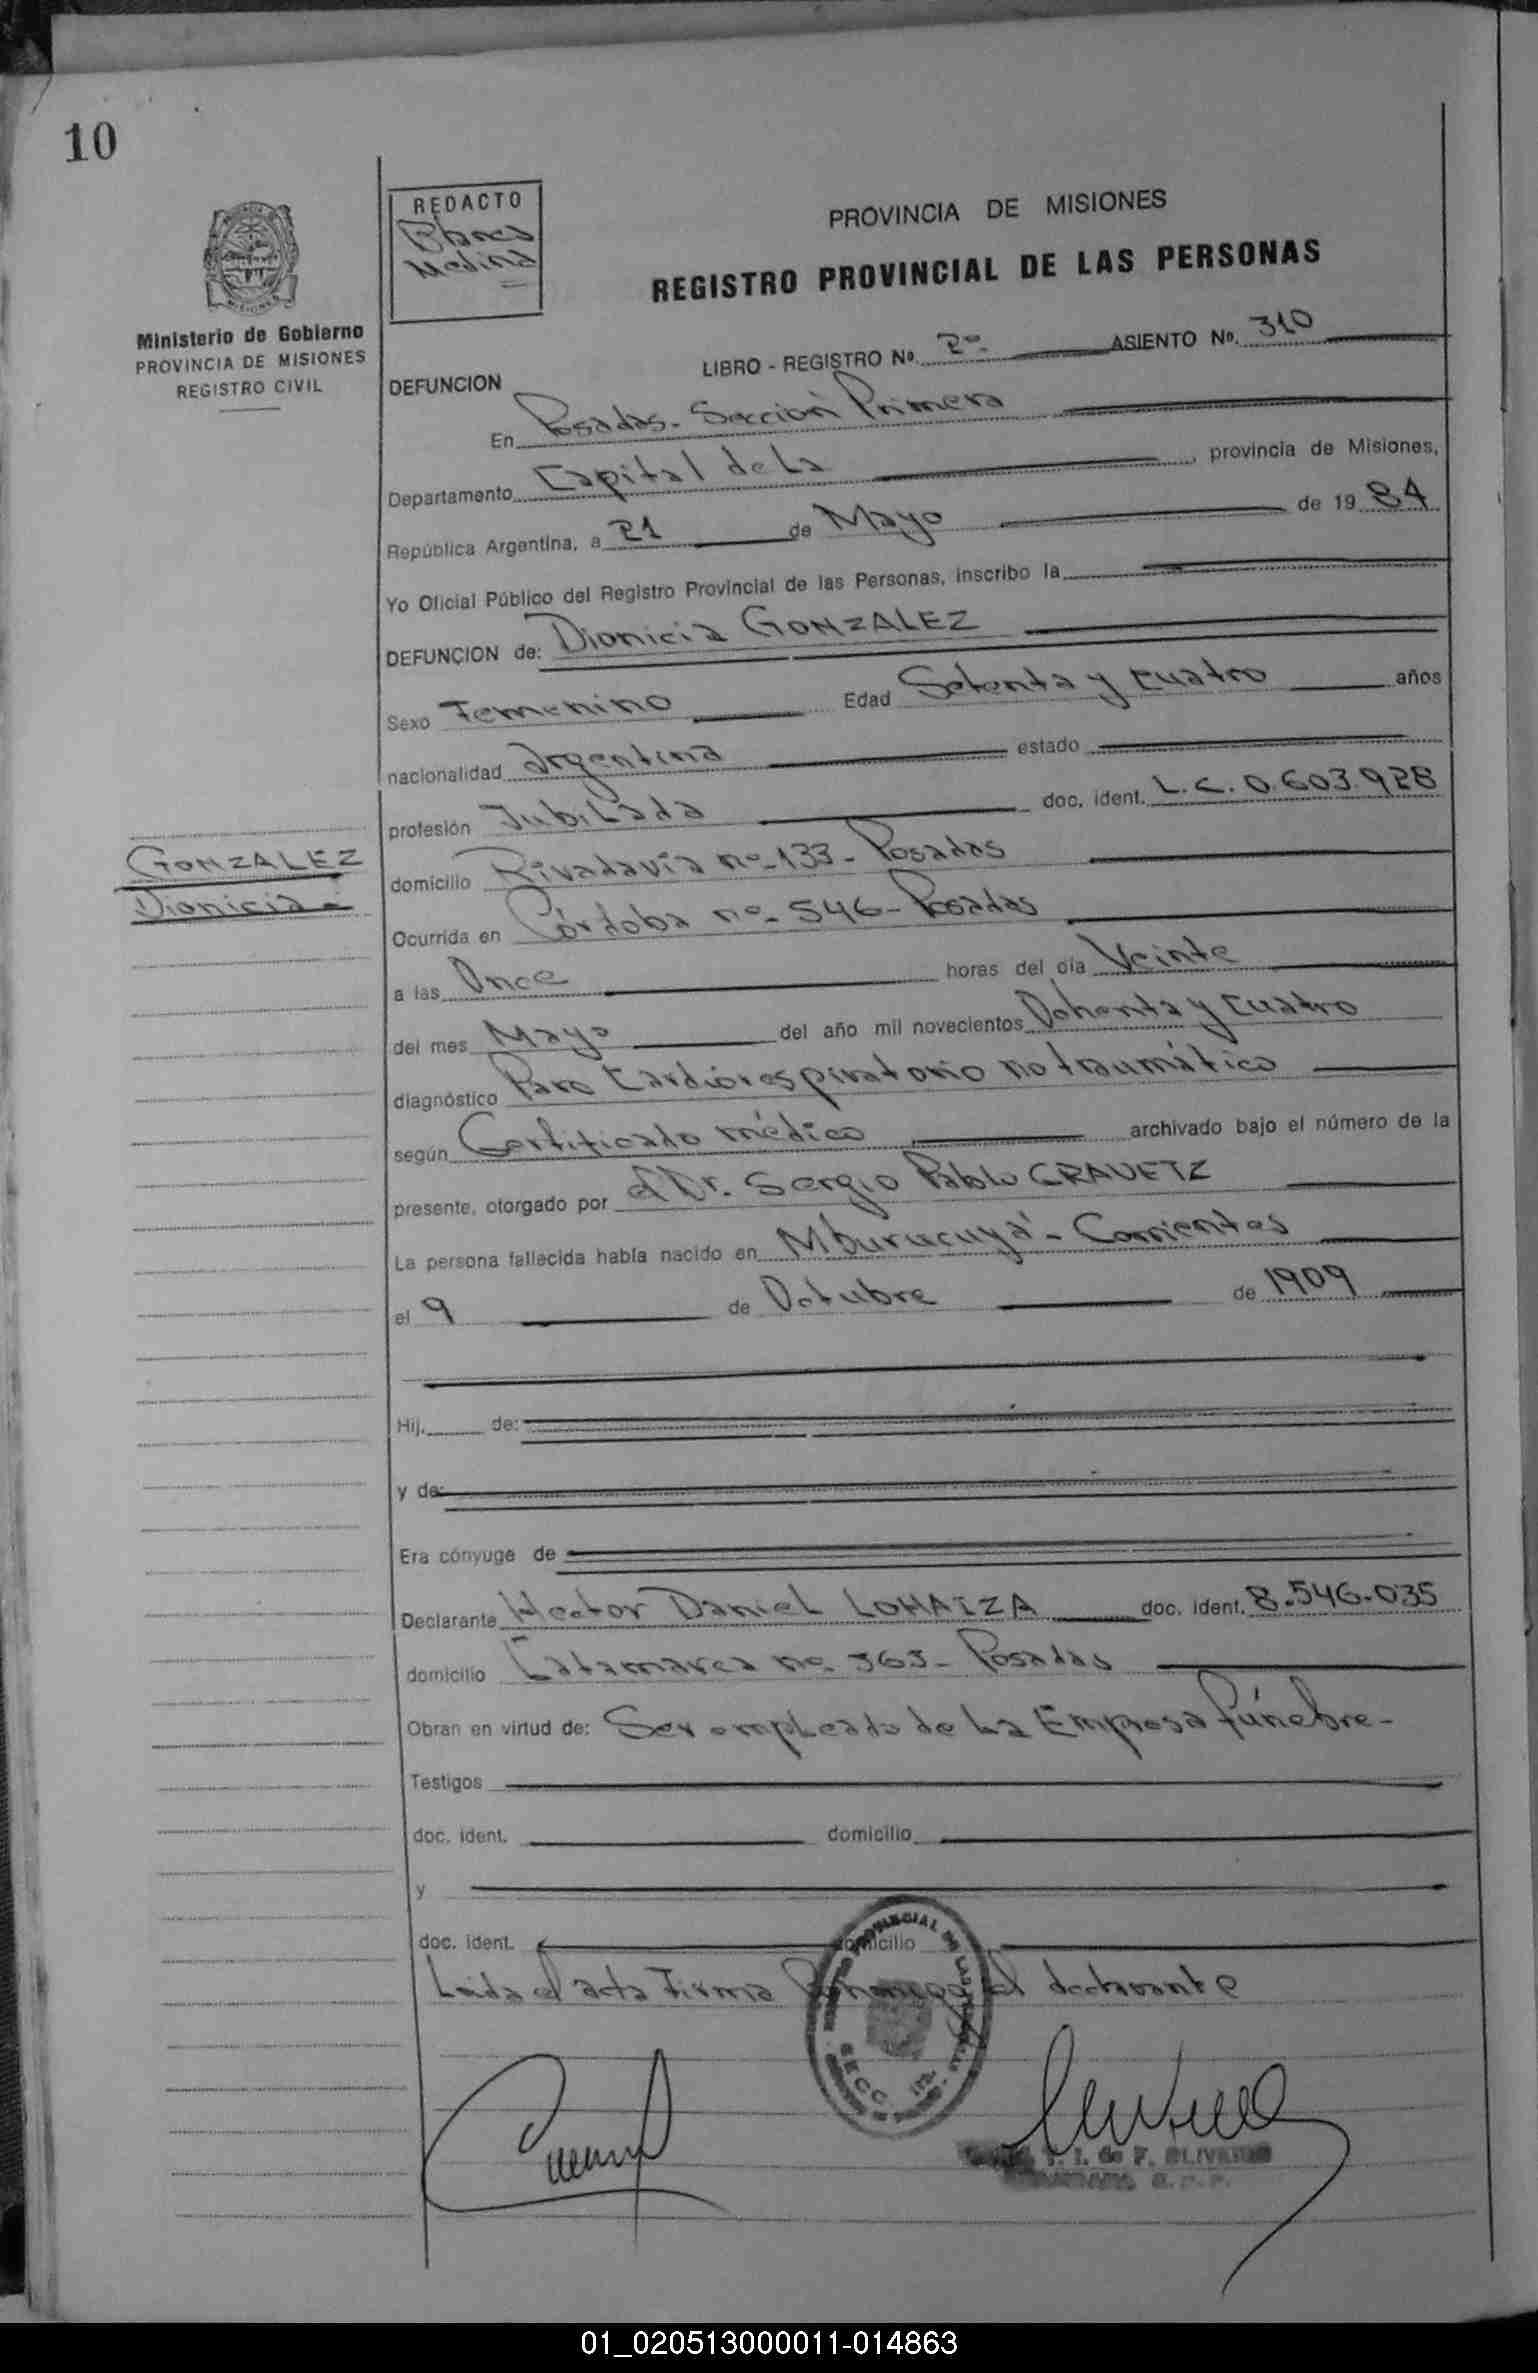 10
REDACTO
Blanca
Medina
PROVINCIA DE MISIONES
REGISTRO PROVINCIAL DE LAS PERSONAS
Ministerio de Gobierno
PROVINCIA DE MISIONES
REGISTRO CIVIL
LIBRO - REGISTRO Nº. 2º- ASIENTO Nº. 310
DEFUNCION
En Posadas- Sección Primera
Departamento Capital de La provincia de Misiones,
República Argentina, a 21 de Mayo de 1984
Yo Oficial Público del Registro Provincial de las Personas, inscribo la
DEFUNCION de: Dionicia GONZALEZ
Sexo Femenino Edad Setenta y cuatro años
nacionalidad argentina estado
profesión JubiLada doc. ident. L.C. 0.603.928
GONZALEZ
Dionicia-
domicilio Rivadavia nº-133- Posadas
Ocurrida en Córdoba nº- 546- Posadas
a las Once horas del día Veinte
del mes Mayo del año mil novecientos Ochenta y cuatro
diagnóstico Paro Cardiorespiratorio no traumático
según Certificado médico archivado bajo el número de la
presente, otorgado por el Dr. Sergio Pablo GRAVETZ
La persona fallecida había nacido en Mburucuyá- Corrientes
el 9 de Octubre de 1909
Hij. de:
y de:
Era cónyuge de
Declarante Hector DanieL LOHAIZA doc. ident. 8.546.035
domicilio Catamarca nº 363- Posadas
Obran en virtud de: Ser empleado de La Empresa fúnebre-
Testigos
doc. ident. domicilio
y
doc. ident. domicilio
Leida el acta Firma el declarante
PROVINCIAL DE LAS
SECC. 1ra.
T. I. de F. OLIVEIRA
01_020513000011-014863